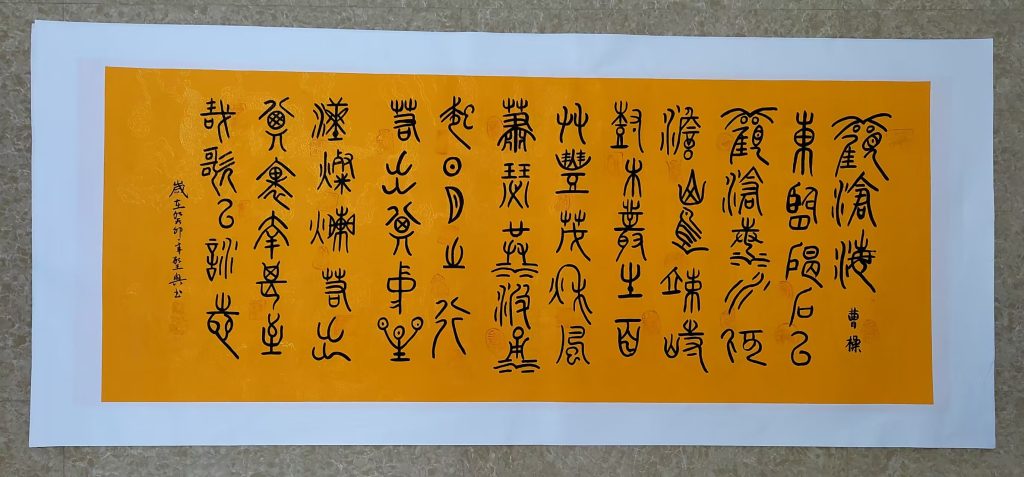 觀滄海
曹操
東臨碣石以
觀滄海水何
澹澹山島竦峙
樹木叢生百
艸豐茂秋風
蕭瑟洪波湧
起日月之行
若出其中星
漢燦爛若出
其裏幸甚至
哉歌以詠志
歲在癸卯年聖興书